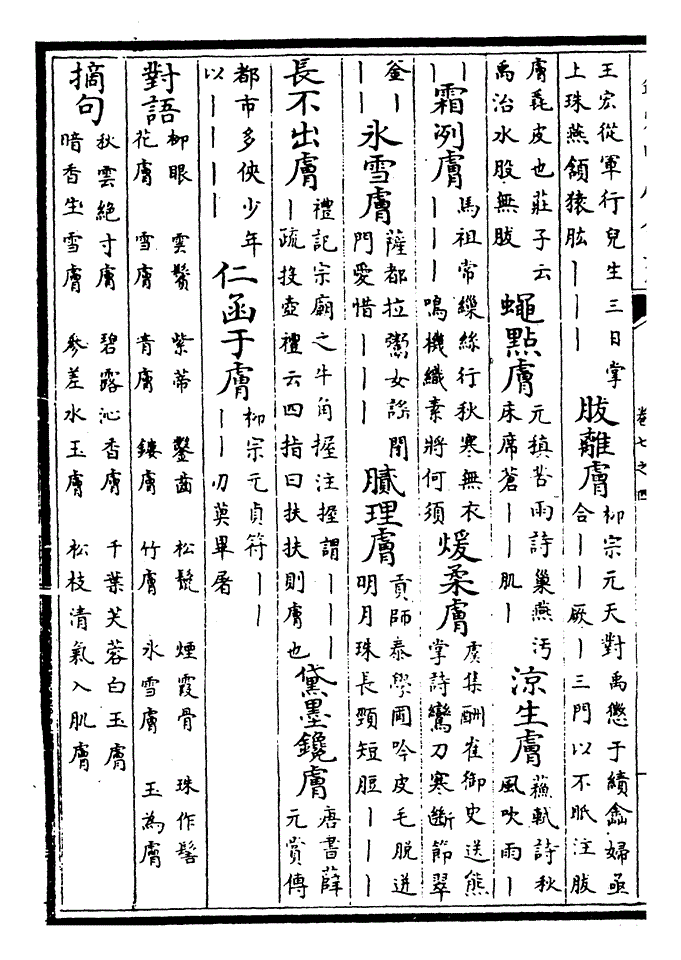 卷七之四
王宏從軍行兒生三日掌
上珠燕頷猿肱丨丨丨
胈離膚
柳宗元天對禹懲于績嵞婦亟
合丨丨厥丨三門以不眂注胈
膚毳皮也莊子云
禹治水股無胈
蠅點膚
元稹苦雨詩巢燕汚
床席蒼丨丨肌丨
涼生膚
蘇軾詩秋
風吹雨丨
丨丨
霜冽膚
馬祖常繅絲行秋寒無衣
丨丨丨鳴機織素將何須
煖柔膚
虞集酬崔御史送熊
掌詩鸞刀寒斷節翠
釜丨
丨丨
氷雪膚
薩都拉鬻女謡閉
門愛惜丨丨丨
膩理膚
貢師泰學圃吟皮毛脱迸
明月珠長頸短脰丨丨丨
長不出膚
禮記宗廟之牛角握注握謂丨丨丨
丨疏投壺禮云四指曰扶扶則膚也
黛墨鑱膚
唐書薛
元賞傳
都市多俠少年
以丨丨丨丨
仁函于膚
柳宗元貞符丨丨
丨丨刃莫畢屠
對語
柳眼 雲鬢 紫蒂 鑿齒 松髭 煙霞骨 珠作髻
花膚 雪膚 青膚 鏤膚 竹膚 氷雪膚 玉為膚
摘句
秋雲絕寸膚 碧露沁香膚 千葉芙蓉白玉膚
暗香生雪膚 參差水玉膚 松枝清氣入肌膚